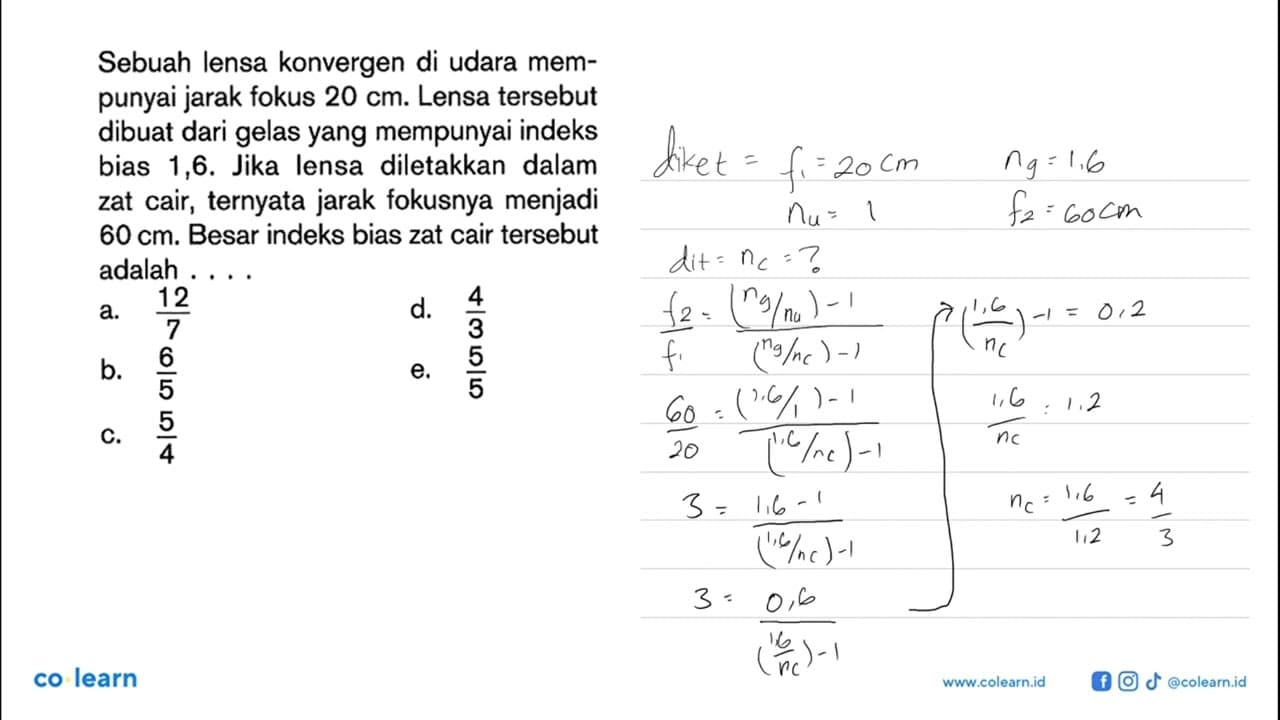 Sebuah lensa konvergen di udara mem-
punyai jarak fokus 20 cm. Lensa tersebut
dibuat dari gelas yang mempunyai indeks
bias 1,6. Jika lensa diletakkan dalam
zat cair, ternyata jarak fokusnya menjadi
60 cm. Besar indeks bias zat cair tersebut
adalah . . . .
a. 12/7
b. 6/5
c. 5/4
d. 4/3
e. 5/5
diket = f₁ = 20 cm
nu = 1
ng = 1,6
f2 = 60 cm
dit = nc = ?
f2/f₁ = ((ng/nu) - 1)/((ng/nc) - 1)
60/20 = ((1,6/1) - 1)/((1,6/nc) - 1)
3 = (1,6 - 1)/((1,6/nc) - 1)
3 = 0,6/((1,6/nc) - 1)
(1,6/nc) - 1 = 0,2
1,6/nc = 1,2
nc = 1,6/1,2 = 4/3
co learn
www.colearn.id
@colearn.id